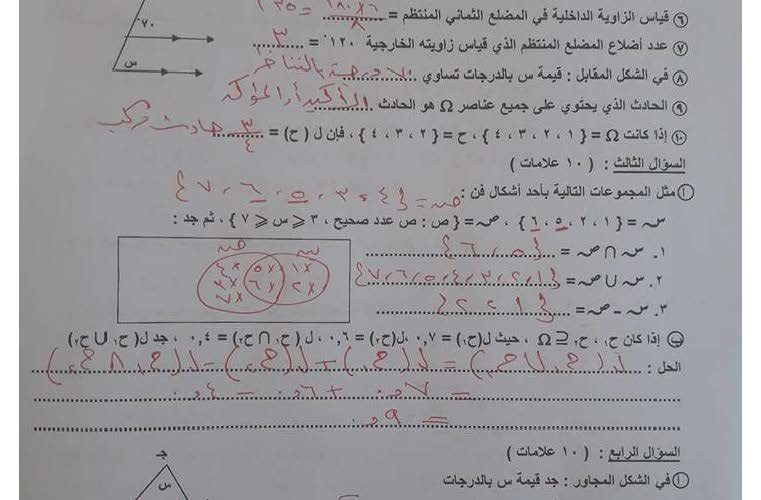 ٦ قياس الزاوية الداخلية في المضلع الثماني المنتظم = ١٨٠×٦ / ٨ = ١٣٥
٧ عدد أضلاع المضلع المنتظم الذي قياس زاويته الخارجية ١٢٠° = ٣
٧٠°
س
٨ في الشكل المقابل : قيمة س بالدرجات تساوي ٧٠ درجة بالتناظر
٩ الحادث الذي يحتوي على جميع عناصر Ω هو الحادث الأكيد أو المؤكد
١٠ إذا كانت Ω = {١ ، ٢ ، ٣ ، ٤} ، ح = {٢ ، ٣ ، ٤} ، فإن ل ( ح) = ٣/٤ حادث مركب
السؤال الثالث : ( ١٠ علامات )
أ مثل المجموعات التالية بأحد أشكال فن : ص = {٣، ٤، ٥، ٦، ٧}
س = {١ ، ٢ ، ٥ ، ٦} ، ص = {ص : ص عدد صحيح ، ٣ ⩽ س ⩽ ٧} ، ثم جد :
١. س ∩ ص = {٥، ٦}
٢. س ∪ ص = {١، ٢، ٣، ٤، ٥، ٦، ٧}
٣. س - ص = {١، ٢}
ص س
٤× ٥× ١×
٣× ٦× ٢×
٧×
ب إذا كان ح١ ، ح٢ ⊆ Ω ، حيث ل(ح١) = ٠,٧ ، ل(ح٢) = ٠,٦ ، ل ( ح١ ∩ ح٢) = ٠,٤ ، جد ل( ح١ ∪ ح٢)
الحل : ل(ح١ ∪ ح٢) = ل(ح١) + ل(ح٢) - ل(ح١ ∩ ح٢)
= ٠,٧ + ٠,٦ - ٠,٤
= ٠,٩
السؤال الرابع : ( ١٠ علامات )
أ في الشكل المجاور : جد قيمة س بالدرجات
جـ
س